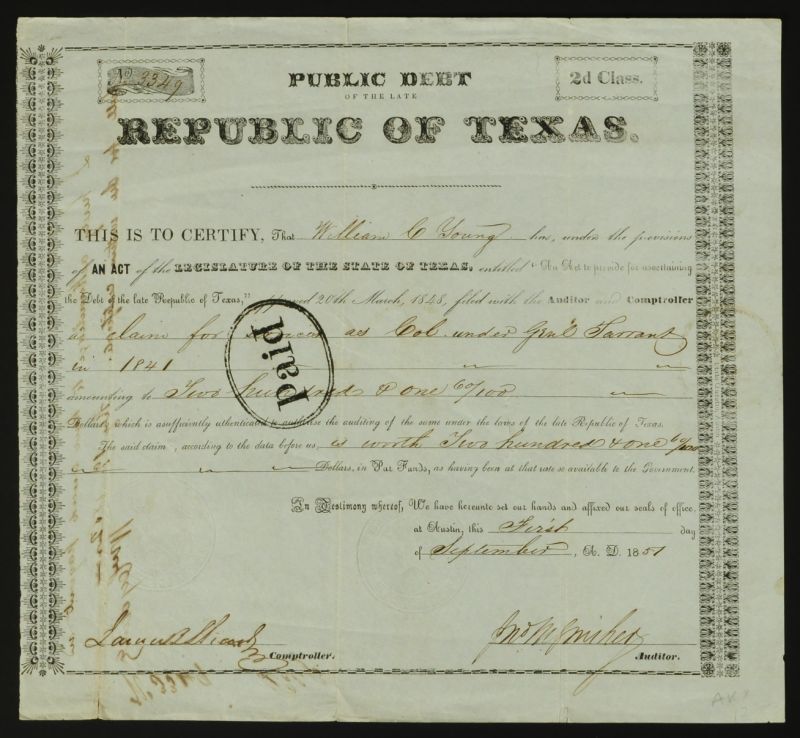 No 3349
PUBLIC DEBT
2d Class.
OF THE LATE
REPUBLIC OF TEXAS.
THIS IS TO CERTIFY, That William C Young has, under the provisions
of AN ACT of the LEGISLATURE OF THE STATE OF TEXAS, entitled "An Act to provide for ascertaining
the Debt of the late Republic of Texas," 20th March, 1848, filed with the Auditor and Comptroller
a claim for as Col. under Genl Tarrant
in 1841
amounting to Two hundred & One 60/100
Dollars, which is asufficiently uthenticated to authorise the auditing of the same under the laws of the late Republic of Texas.
The said claim, according to the data before us, is worth Two hundred & one 60/100
Dollars, in Par Funds, as having been at that rate so available to the Government.
Paid
In Testimony whereof, We have hereunto set our hands and affixed our seals of office,
at Austin, this First day
of September, A. D. 1851
Comptroller.
Auditor.